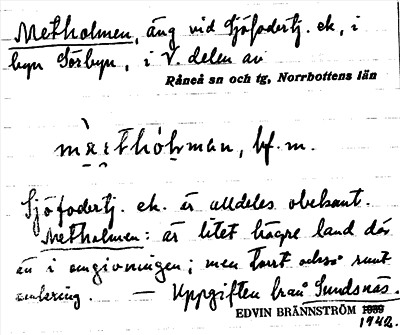 Metholmen, äng vid Sjöfodertj. ek., i
byn Sörbyn, i V. delen av
Råneå sn och tg, Norrbottens län
mæ̀thòl̥man, bf. m.
Sjöfodertj. ek. är alldeles obekant.
Metholmen: är litet högre land där
än i omgivningen; men torrt också runt
omkring. — Uppgiften från Sundsnäs.
EDVIN BRÄNNSTRÖM 1939
1942.